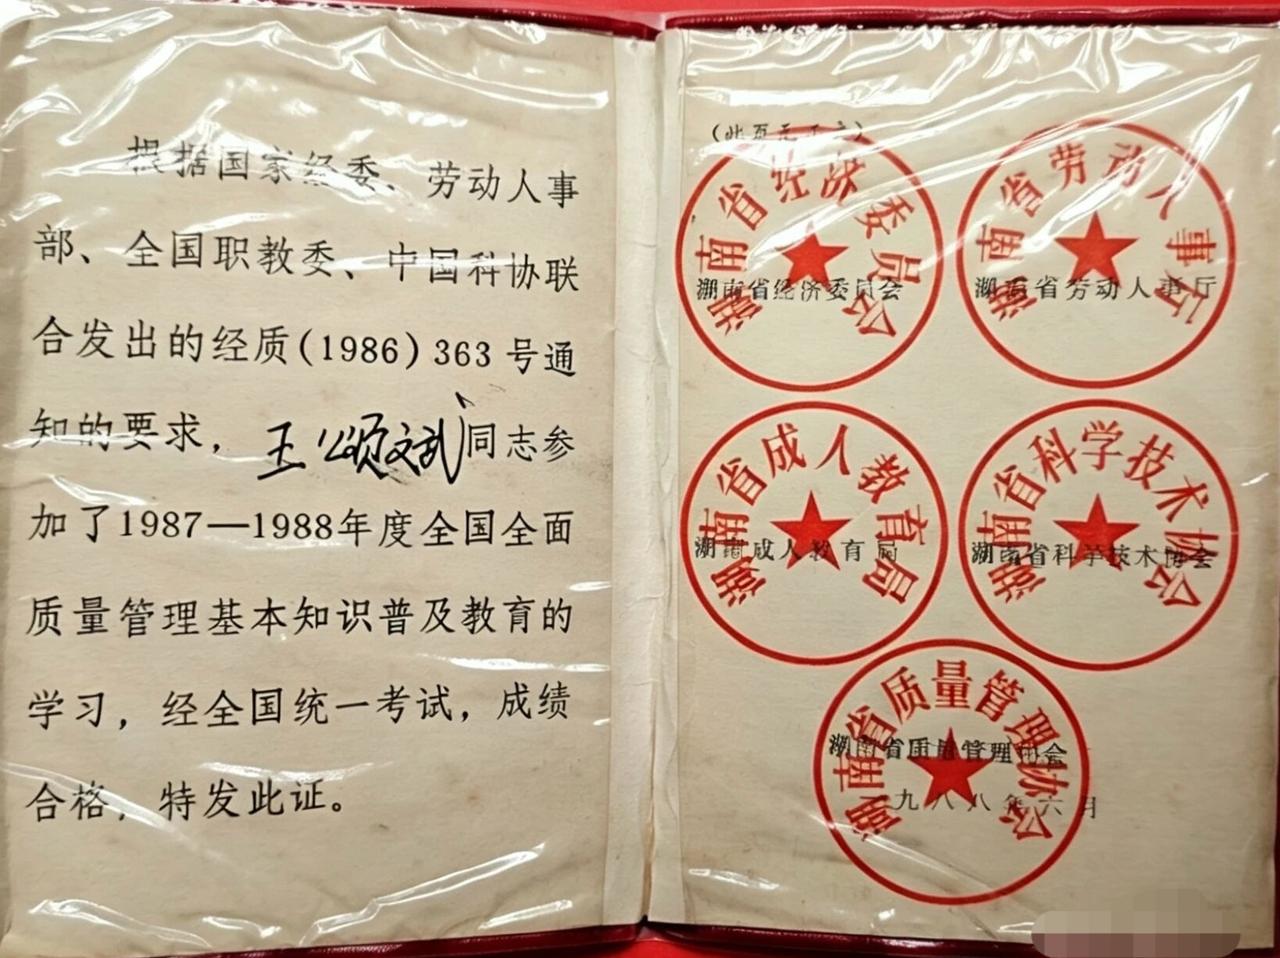 根据国家经委、劳动人事
部、全国职教委、中国科协联
合发出的经质(1986)363号通
知的要求，王颂斌同志参
加了1987—1988年度全国全面
质量管理基本知识普及教育的
学习，经全国统一考试，成绩
合格，特发此证。
湖南省经济委员会
湖南省经济委员会
湖南省劳动人事厅
湖南省劳动人事厅
湖南省成人教育局
湖南成人教育局
湖南省科学技术协会
湖南省科学技术协会
湖南省质量管理协会
湖南省质量管理协会
九八八年六月